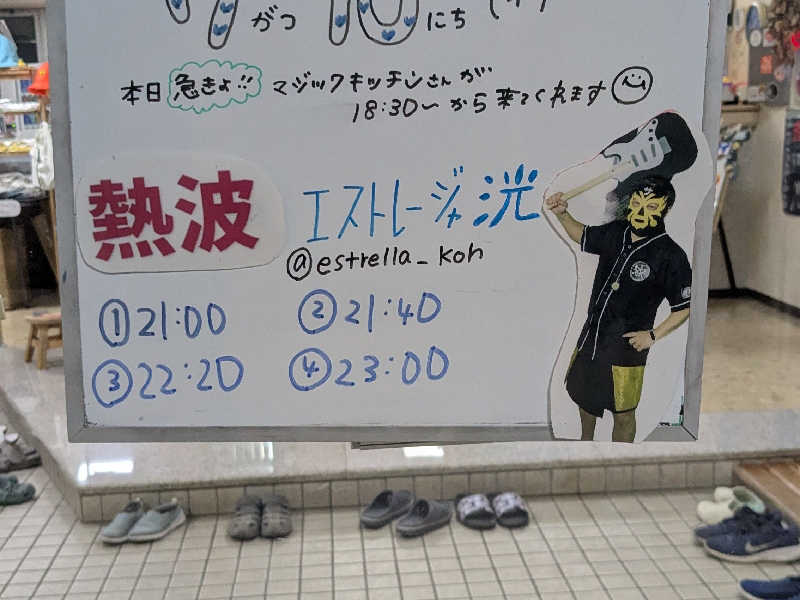 7がつ10にち(
本日 急きょ!! マジックキッチンさんが
18:30〜から来てくれます
熱波 エストレージャ洸
@estrella_koh
①21:00 ②21:40
③22:20 ④23:00